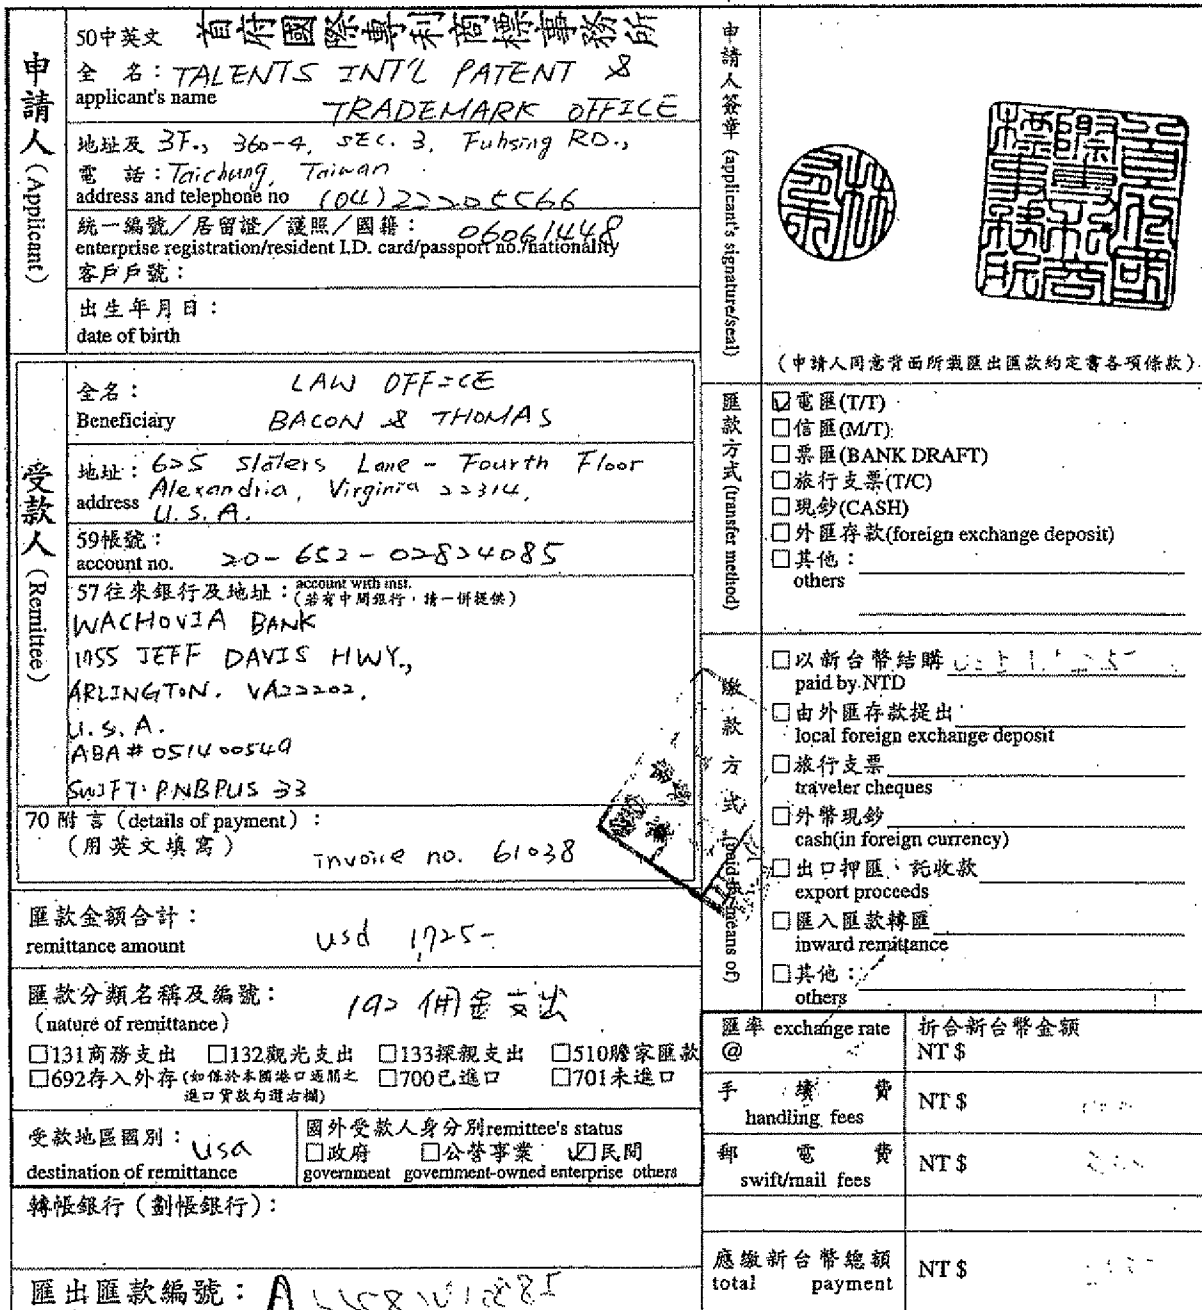 50中英文 首府國際專利商標事務所
申請人 (Applicant)
全 名：TALENTS INT'L PATENT &
applicant's name
TRADEMARK OFFICE
地址及 3F., 360-4, SEC. 3, Fuhsing RD.,
電 話：Taichung, Taiwan
address and telephone no (04)22205566
統一編號／居留證／護照／國籍： 06061448
enterprise registration/resident I.D. card/passport no./nationality
客戶戶號：
出生年月日：
date of birth
受款人 (Remittee)
全名： LAW OFFICE
Beneficiary BACON & THOMAS
地址：625 Slaters Lane - Fourth Floor
address Alexandria, Virginia 22314,
U.S.A.
59帳號：
account no. 20-652-02824085
57往來銀行及地址：account with inst.
(若有中間銀行，請一併提供)
WACHOVIA BANK
1755 JEFF DAVIS HWY.,
ARLINGTON. VA22202,
U.S.A.
ABA# 051400549
SWIFT: PNBPUS 33
70 附言 (details of payment)：
(用英文填寫) invoice no. 61038
匯款金額合計：
remittance amount usd 1,725-
匯款分類名稱及編號： 192 佣金支出
(nature of remittance)
□131商務支出 □132觀光支出 □133探親支出 □510贍家匯款
□692存入外存(如係於本國港口通關之 □700已進口 □701未進口
進口貨款勾選右欄)
受款地區國別： usa
destination of remittance
國外受款人身分別remittee's status
□政府 □公營事業 ☑民間
government government-owned enterprise others
轉帳銀行（劃帳銀行）：
匯出匯款編號：
申請人簽章 (applicant's signature/seal)
(申請人同意背面所載匯出匯款約定書各項條款)
匯款方式 (transfer method)
☑電匯(T/T)
□信匯(M/T)
□票匯(BANK DRAFT)
□旅行支票(T/C)
□現鈔(CASH)
□外匯存款(foreign exchange deposit)
□其他：
others
繳款方式 (paid by means of)
□以新台幣結購
paid by NTD
□由外匯存款提出
local foreign exchange deposit
□旅行支票
traveler cheques
□外幣現鈔
cash(in foreign currency)
□出口押匯、託收款
export proceeds
□匯入匯款轉匯
inward remittance
□其他：
others
匯率 exchange rate 折合新台幣金額
@ NT $
手 續 費 NT $
handling fees
郵 電 費 NT $
swift/mail fees
應繳新台幣總額 NT $
total payment